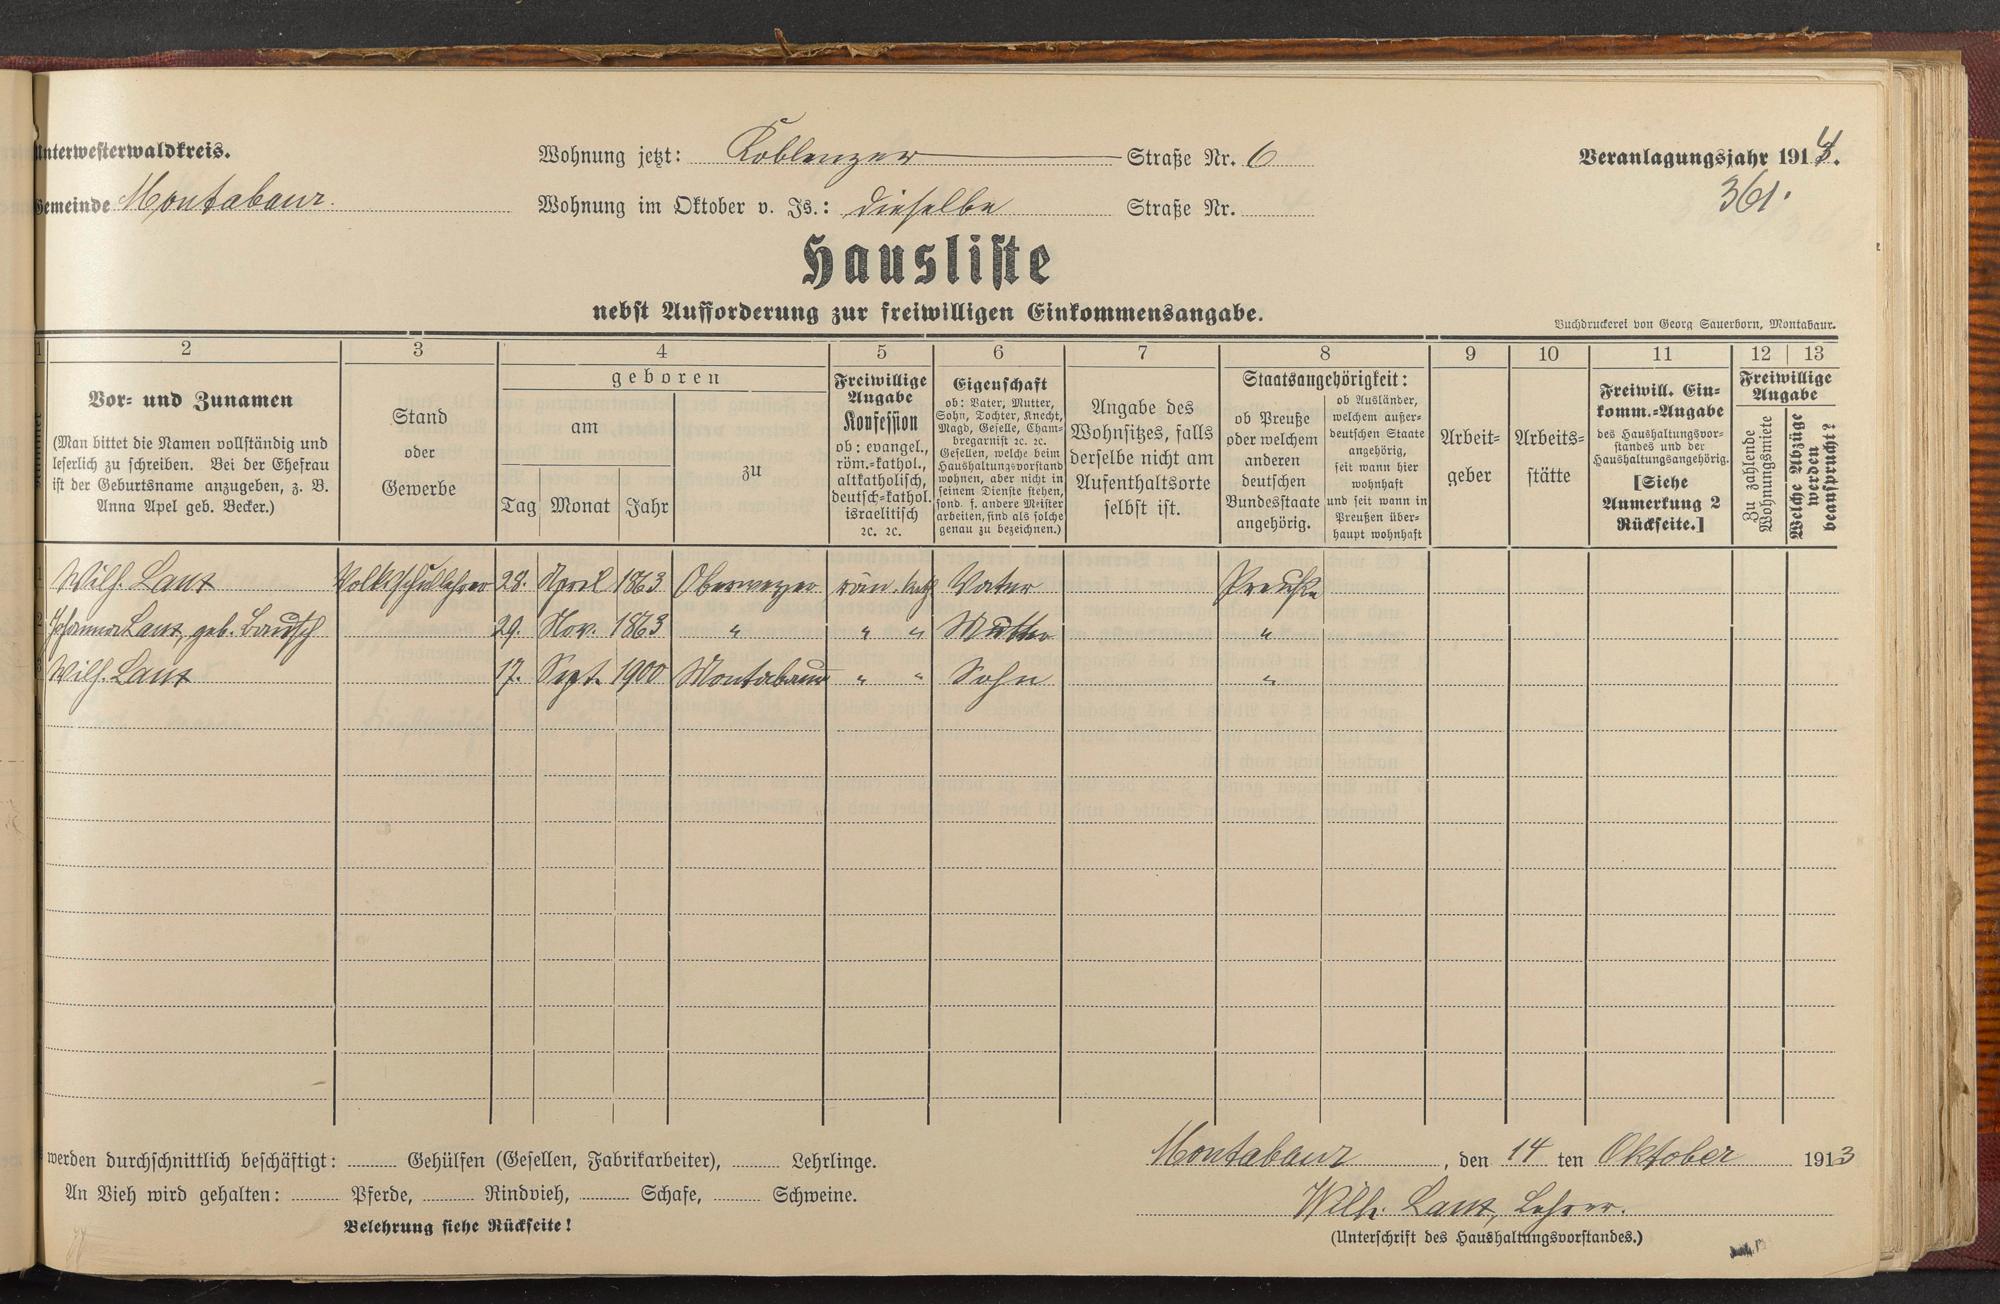 Unterwesterwaldkreis.
Wohnung jetzt: Koblenzer Straße Nr. 6
Veranlagungsjahr 1914.
361.
Gemeinde Montabaur.
Wohnung im Oktober v. Js.: dieselbe Straße Nr.
Hausliste
nebst Aufforderung zur freiwilligen Einkommensangabe.
Buchdruckerei von Georg Sauerborn, Montabaur.
1 2 3 4 5 6 7 8 9 10 11 12 13
Vor- und Zunamen
(Man bittet die Namen vollständig und
leserlich zu schreiben. Bei der Ehefrau
ist der Geburtsname anzugeben, z. B.
Anna Apel geb. Becker.)
Stand
oder
Gewerbe
geboren
am
Tag Monat Jahr
zu
Freiwillige
Angabe
Konfession
ob: evangel.,
röm.-kathol.,
altkatholisch,
deutsch-kathol.
israelitisch
ꝛc. ꝛc.
Eigenschaft
ob: Vater, Mutter,
Sohn, Tochter, Knecht,
Magd, Geselle, Cham-
bregarnist ꝛc. ꝛc.
Gesellen, welche beim
Haushaltungsvorstand
wohnen, aber nicht in
seinem Dienste stehen,
sond. f. andere Meister
arbeiten, sind als solche
genau zu bezeichnen.)
Angabe des
Wohnsitzes, falls
derselbe nicht am
Aufenthaltsorte
selbst ist.
Staatsangehörigkeit:
ob Preuße
oder welchem
anderen
deutschen
Bundesstaate
angehörig.
ob Ausländer,
welchem außer-
deutschen Staate
angehörig,
seit wann hier
wohnhaft
und seit wann in
Preußen über-
haupt wohnhaft
Arbeit-
geber
Arbeits-
stätte
Freiwill. Ein-
komm.-Angabe
des Haushaltungsvor-
standes und der
Haushaltungsangehörig.
[Siehe
Anmerkung 2
Rückseite.]
Freiwillige
Angabe
Zu zahlende
Wohnungsmiete
Welche Abzüge
werden
beansprucht?
1 Wilh. Lanx Volksschullehrer 28. April 1863 Oberweyer röm. kath. Vater Preuße
2 Johanna Lanx, geb. Bausch 29. Nov. 1863 " " " Mutter "
3 Wilh. Lanx 17. Sept. 1900 Montabaur " " Sohn "
werden durchschnittlich beschäftigt: Gehülfen (Gesellen, Fabrikarbeiter), Lehrlinge.
An Vieh wird gehalten: Pferde, Rindvieh, Schafe, Schweine.
Belehrung siehe Rückseite!
Montabaur, den 14 ten Oktober 1913
Wilh. Lanx, Lehrer.
(Unterschrift des Haushaltungsvorstandes.)